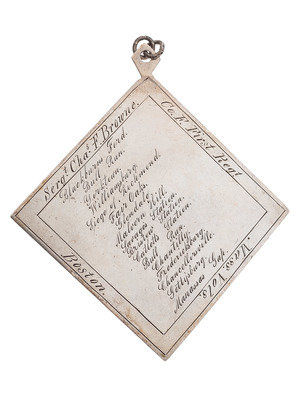 Sergt Chas. F. Browne.
Co. K First Regt
Mass. Vols.
Boston.
Blackburns Ford.
Bull Run.
Yorktown.
Williamsburg.
Siege of Richmond.
Fair Oaks.
Glendale.
Malvern Hill.
Savages Station.
Station.
Bull Run.
Chantilly.
Fredericksburg.
Chancellorsville.
Gettysburg.
Manassas Gap.